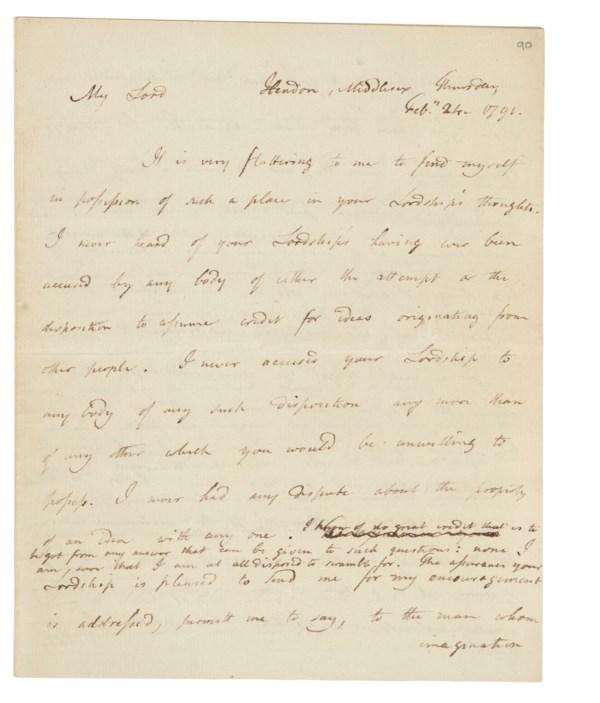 90
My Lord Hendon, Middlesex Thursday
Feb.y 24 1791.
It is very flattering to me to find myself
in possession of such a place in your Lordship's thoughts.
I never heard of your Lordship's having ever been
accused by any body of either the attempt or the
disposition to assume credit for ideas originating from
other people. I never accused your Lordship to
any body of any such disposition any more than
of any other which you would be unwilling to
possess. I never had any dispute about the property
of an idea with any one. I know of no great credit that is to
be got from any answer that can be given to such questions: none I
am, sure that I am at all disposed to scramble for. The assurance your
Lordship is pleased to send me for my encouragement
is addressed, permitt me to say, to the man whom
imagination